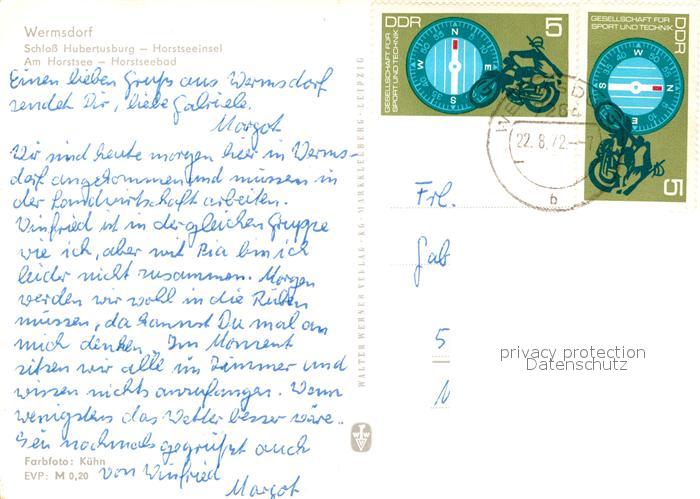 Wermsdorf
Schloß Hubertusburg — Horstseeinsel
Am Horstsee — Horstseebad
Einen lieben Gruß aus Wermsdorf
sendet Dir, liebe Gabriele.
Margot
Wir sind heute morgen hier in Werms-
dorf angekommen und müssen in
der Landwirtschaft arbeiten.
Winfried ist in der gleichen Gruppe
wie ich, aber mit Pia bin ich
leider nicht zusammen. Morgen
werden wir wohl in die Rüben
müssen, da kannst Du mal an
mich denken. Im Moment
sitzen wir alle im Zimmer und
wissen nichts anzufangen. Wenn
wenigstens das Wetter besser wäre.
Sei nochmals gegrüßt auch
von Winfried
Margot
Farbfoto: Kühn
EVP: M 0,20
WALTER WERNER VERLAG · KG · MARKKLEEBERG - LEIPZIG
DDR
5
GESELLSCHAFT FÜR
SPORT UND TECHNIK
N
E
S
W
DDR
5
GESELLSCHAFT FÜR
SPORT UND TECHNIK
N
E
S
W
22.8.72.-7
b
Frl.
Gab
5
privacy protection
Datenschutz